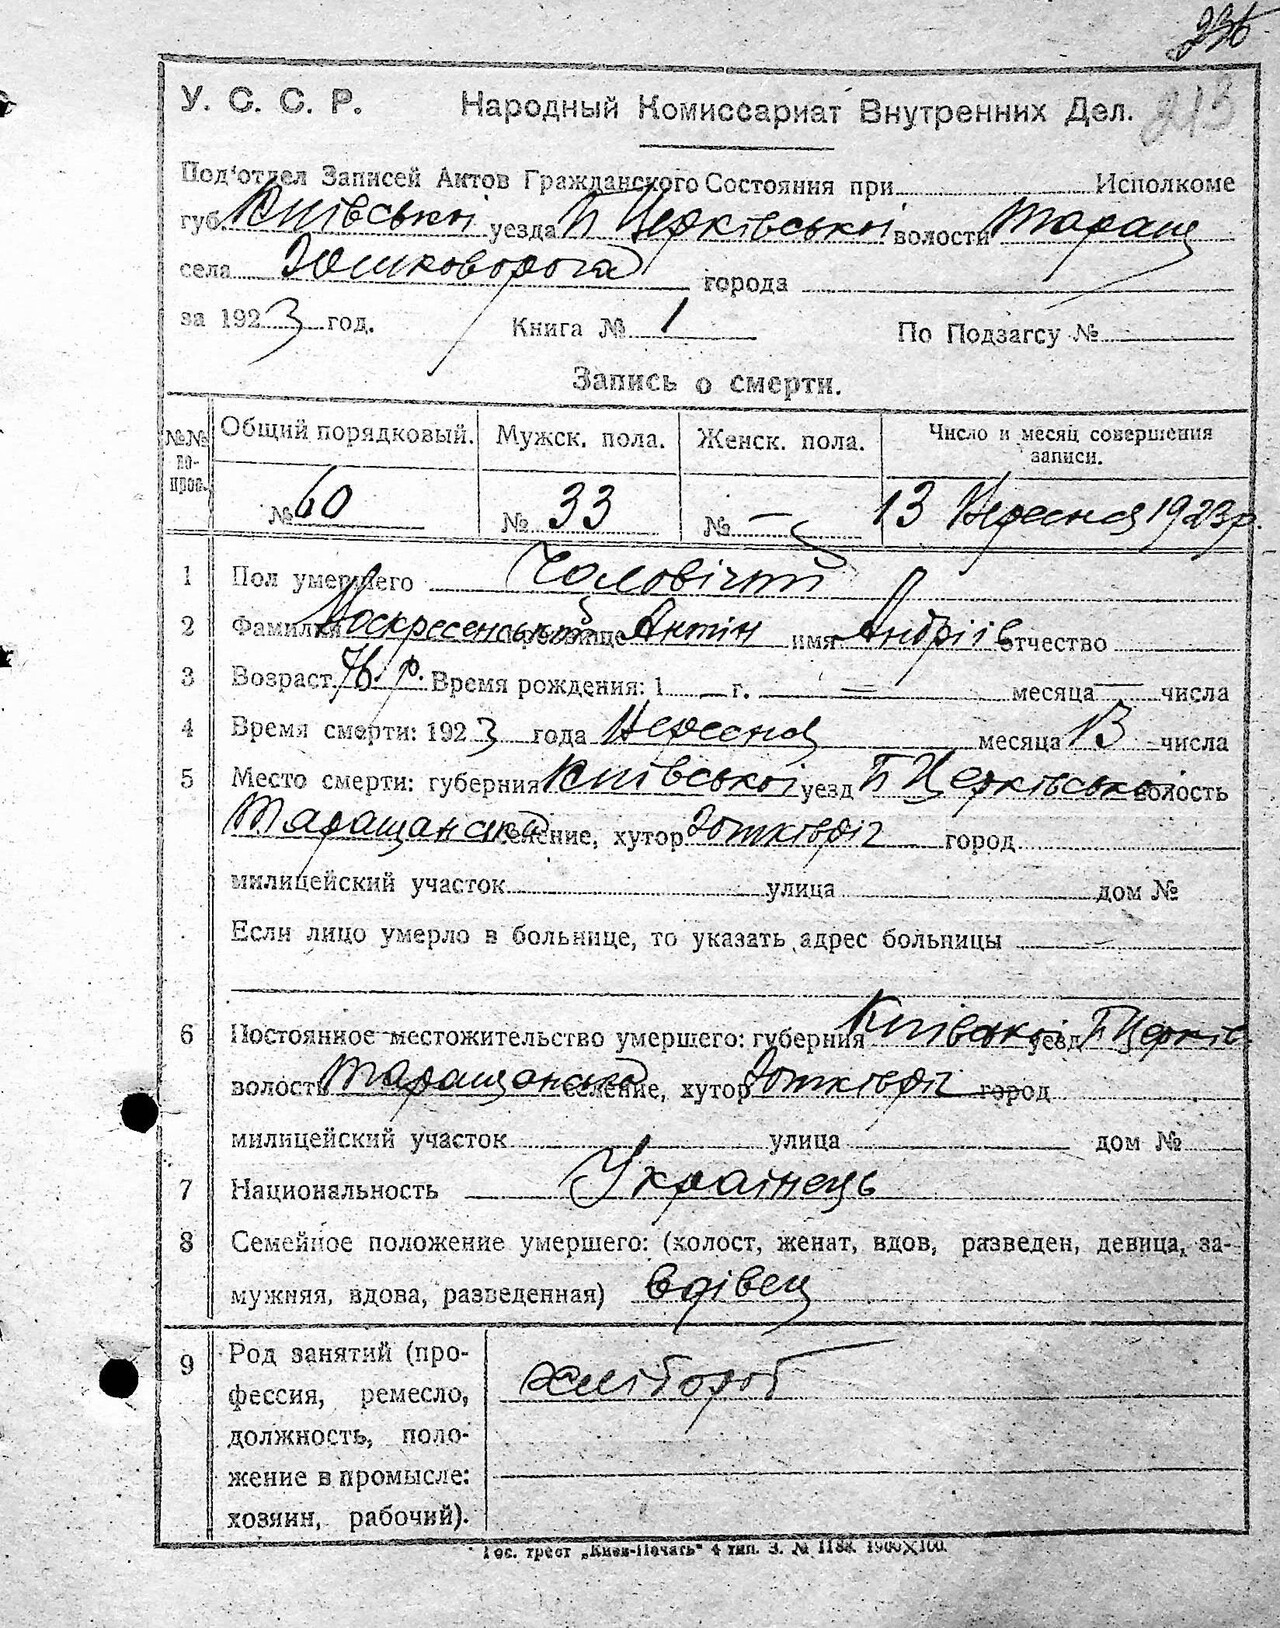 236
213
У. С. С. Р. Народный Комиссариат Внутренних Дел.
Под'отдел Записей Актов Гражданского Состояния при Исполкоме
губ. Київської уезда Б Церківської волости Таращ
села Юшковорога города
за 1923 год. Книга № 1 По Подзагсу №
Запись о смерти.
№№ по-прос. Общий порядковый. Мужск. пола. Женск. пола. Число и месяц совершения записи.
№ 60 № 33 № — 13 Вересня 1923 р.
1 Пол умершего Чоловічий
2 Фамилия Воскресенський прозвище Антін имя Андріїв отчество
3 Возраст 76. р. Время рождения: 1 — г. — месяца — числа
4 Время смерти: 1923 года Вересня месяца 13 числа
5 Место смерти: губерния Київської уезд Б Церківської волость
Таращанська селение, хутор Юшківріг город
милицейский участок улица дом №
Если лицо умерло в больнице, то указать адрес больницы
6 Постоянное местожительство умершего: губерния Київської уезд Б Церків.
волость Таращанська селение, хутор Юшківріг город
милицейский участок улица дом №
7 Национальность Українець
8 Семейное положение умершего: (холост, женат, вдов, разведен, девица, за-
мужняя, вдова, разведенная) вдівец
9 Род занятий (про-
фессия, ремесло, хлібороб
должность, поло-
жение в промысле:
хозяин, рабочий).
Гос. трест „Киев-Печать" 4 тип. З. № 1188. 1900Х100.